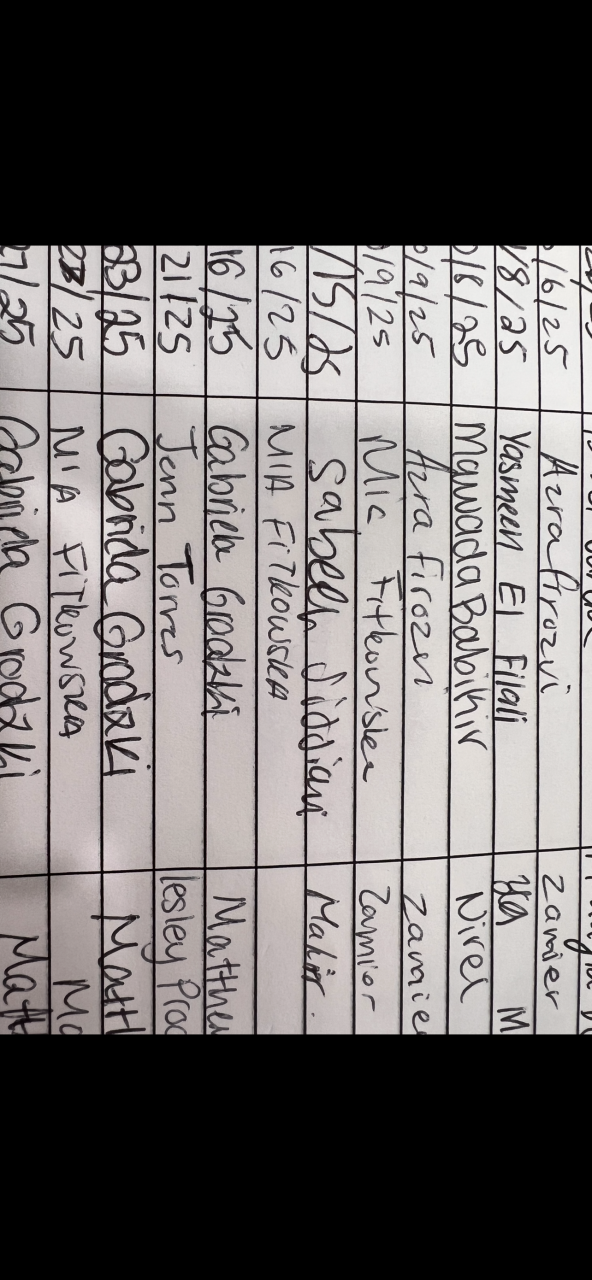 /6/25 Azra firozvi Zamier
/8/25 Yasmeen El Filali Ya M
/8/25 Mawada Babikir Nirel
/9/25 Azra firozvi Zamie
/9/25 Mia Fitkowska Zamior
/15/25 Sabeeh Siddiqui Mahir.
16/25 MIA FITKOWSKA
16/25 Gabriela Grodzki Matthew
21/25 Jenn Torres lesley Proc
23/25 Gabriela Grodzki Matth
/25 MIA FITKOWSKA Ma
27/25 Gabriela Grodzki Matt